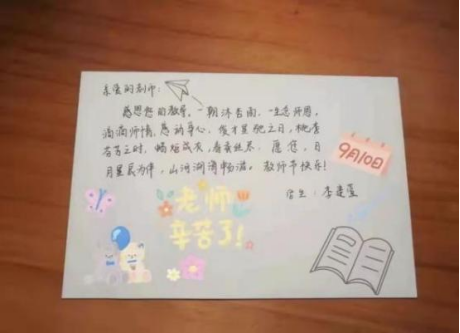 亲爱的老师:
感恩您的教导。一朝沐杏雨,一生念师恩。
滴滴师情,惠润身心,俊才星驰之日,桃李
芬芳之时,蜡炬成灰,春蚕丝尽。愿您,日
月星辰为伴,山河湖海畅游。教师节快乐!
学生:李
9月10日
老师
辛苦了!